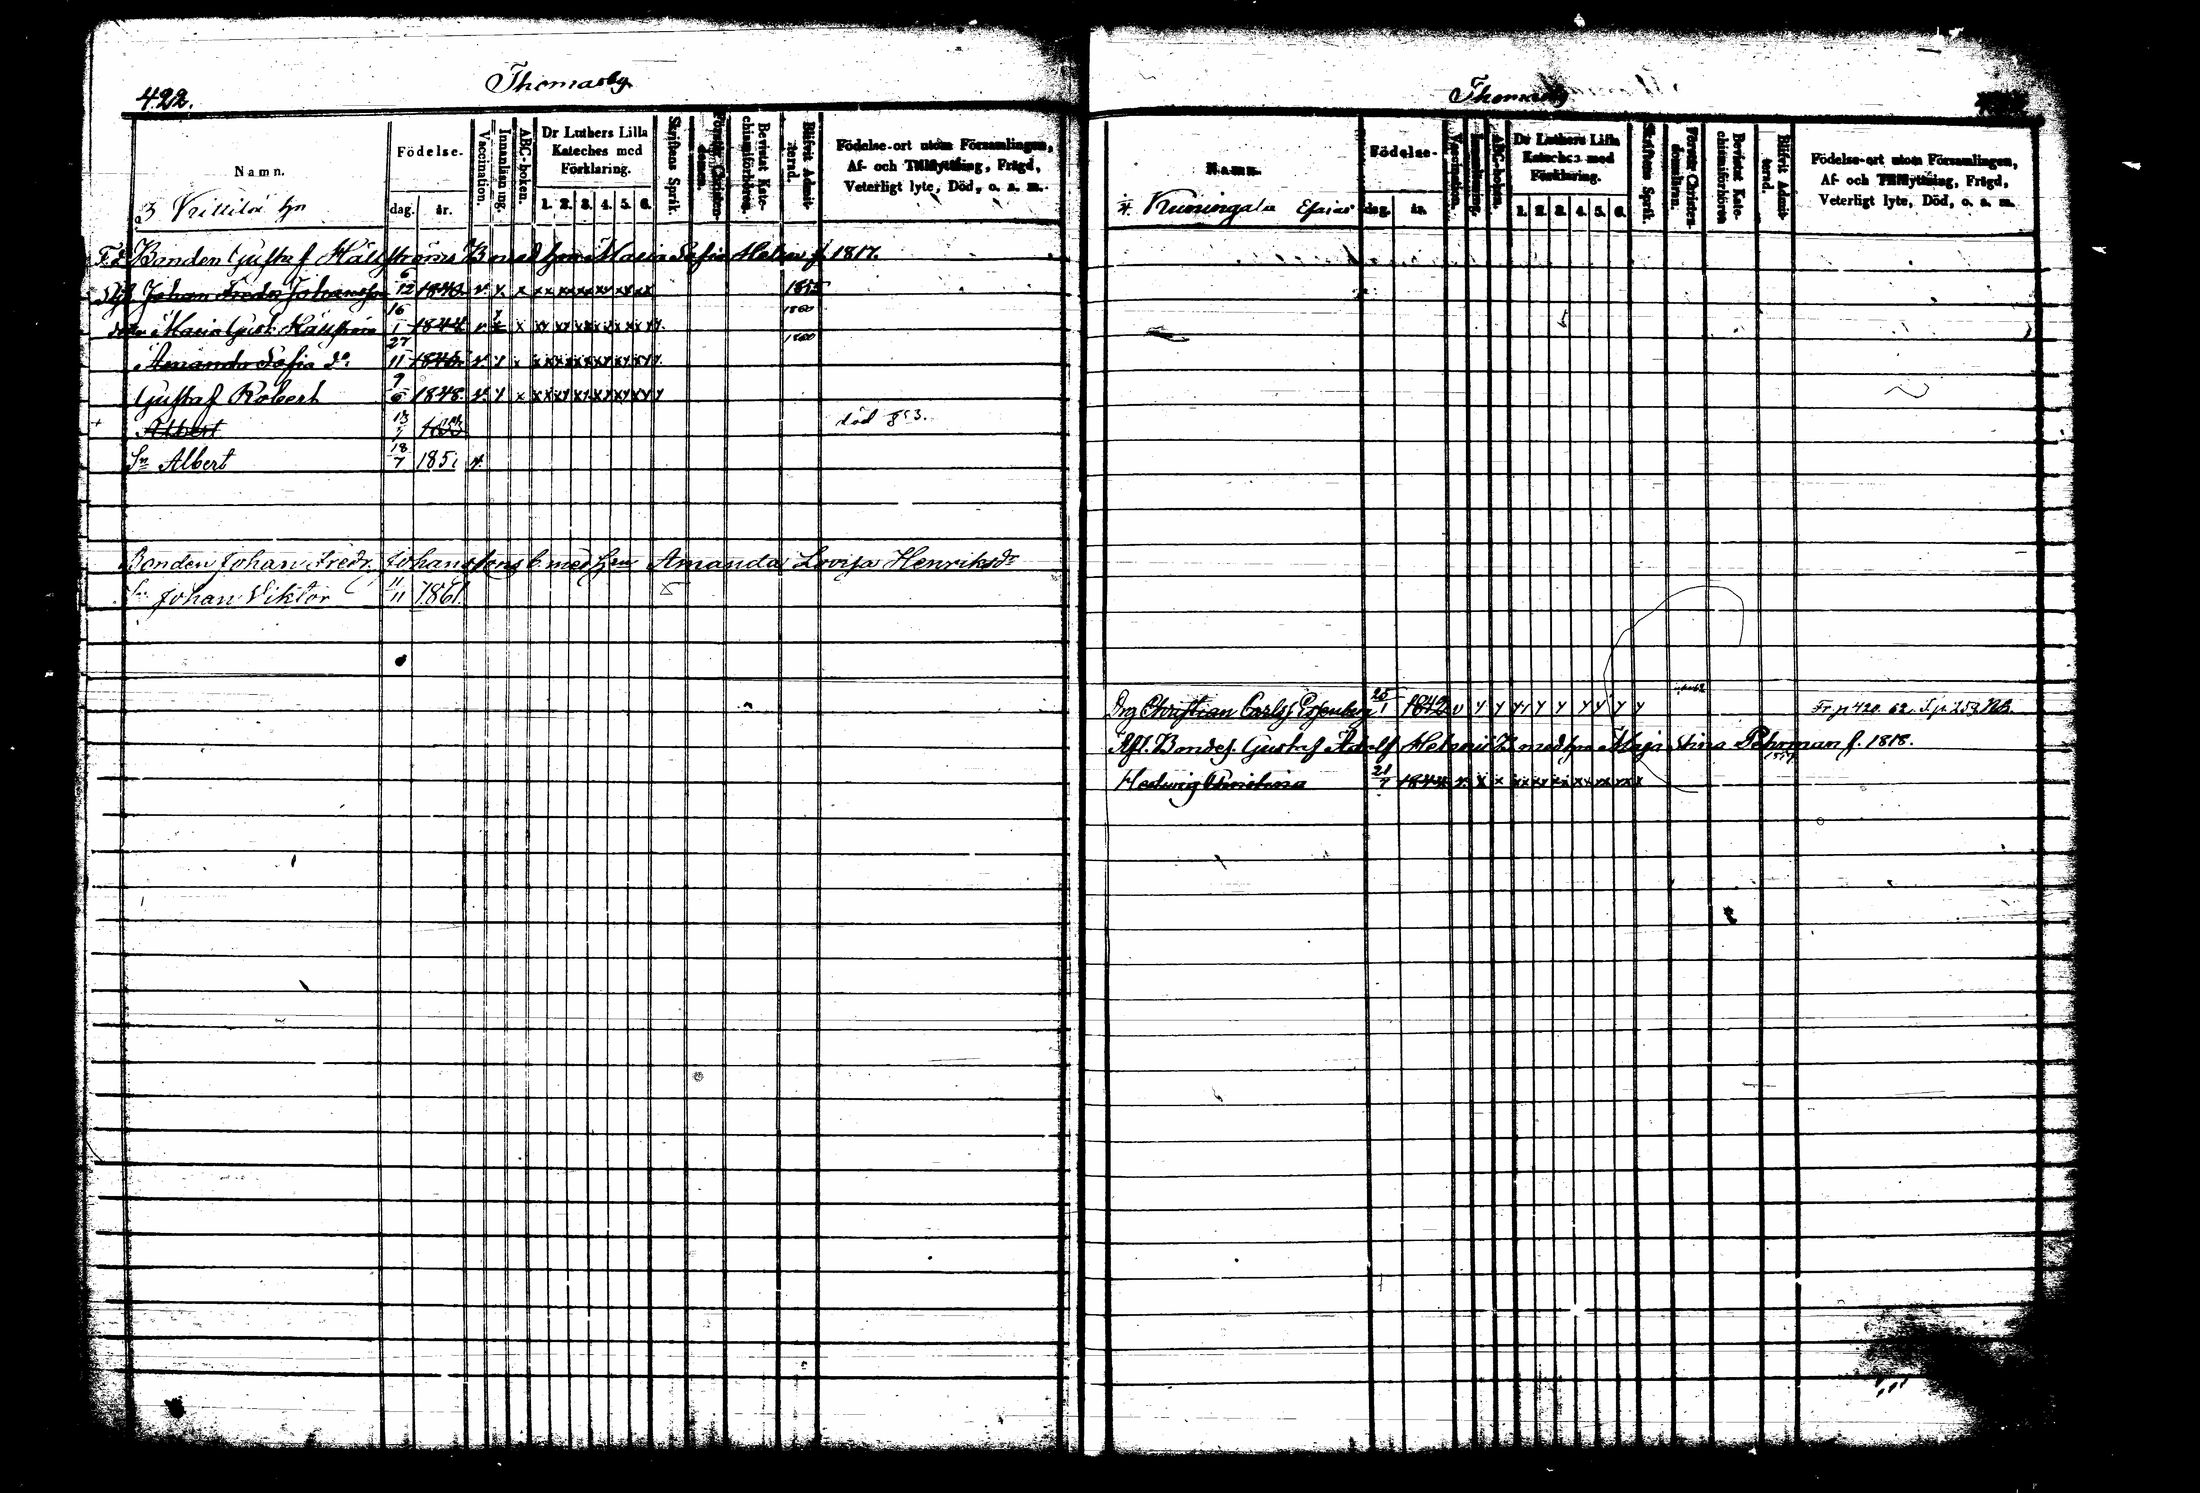 422.
Thomasby
Namn.
Födelse.
dag. år.
Vaccination.
Innanläsning.
ABC-boken.
Dr Luthers Lilla
Kateches med
Förklaring.
1. 2. 3. 4. 5. 6.
Skriftens Språk.
Bevistat Kate-
chismiförhören.
Blifvit Admit-
terad.
Födelse-ort utom Församlingen,
Af- och Tillflyttning, Frägd,
Veterligt lyte, Död, o. a. m.
3
Bonden Gustaf Hällströms B med hm Maria Sofia f. 1817.
Johan Fredr Johansson 6/12 1840 v 1855
Maria Gust. Hällström 16/1 1844 v 1860
Amanda Sofia do 27/11 1845 v 1860
Gustaf Robert 9/5 1848 v
Albert 13/7 död 853.
Sn Albert 18/7 1851 v
Bonden Johan Fredr. Johanssons B med hm Amanda Lovisa Henriksdr
Sn Johan Viktor 11/11 1861
Thomasby
Namn.
Födelse-
dag. år.
Vaccination.
Innanläsning.
ABC-boken.
Dr Luthers Lilla
Kateches med
Förklaring.
1. 2. 3. 4. 5. 6.
Skriftens Språk.
Förstår Christen-
domsläran.
Bevistat Kate-
chismiförhören
Blifvit Admit-
terad.
Födelse-ort utom Församlingen,
Af- och Tillflyttning, Frägd,
Veterligt lyte, Död, o. a. m.
4. Kuningala Esaias
Drg Christian Carlss 25/1 1842 v Fr. p 420. 62. T. p. 259 NB.
Afl. Bondes. Gustaf Adolf B med hm Maja Stina Pehrman f. 1818.
Hedwig Christina 21/7 1844 v.